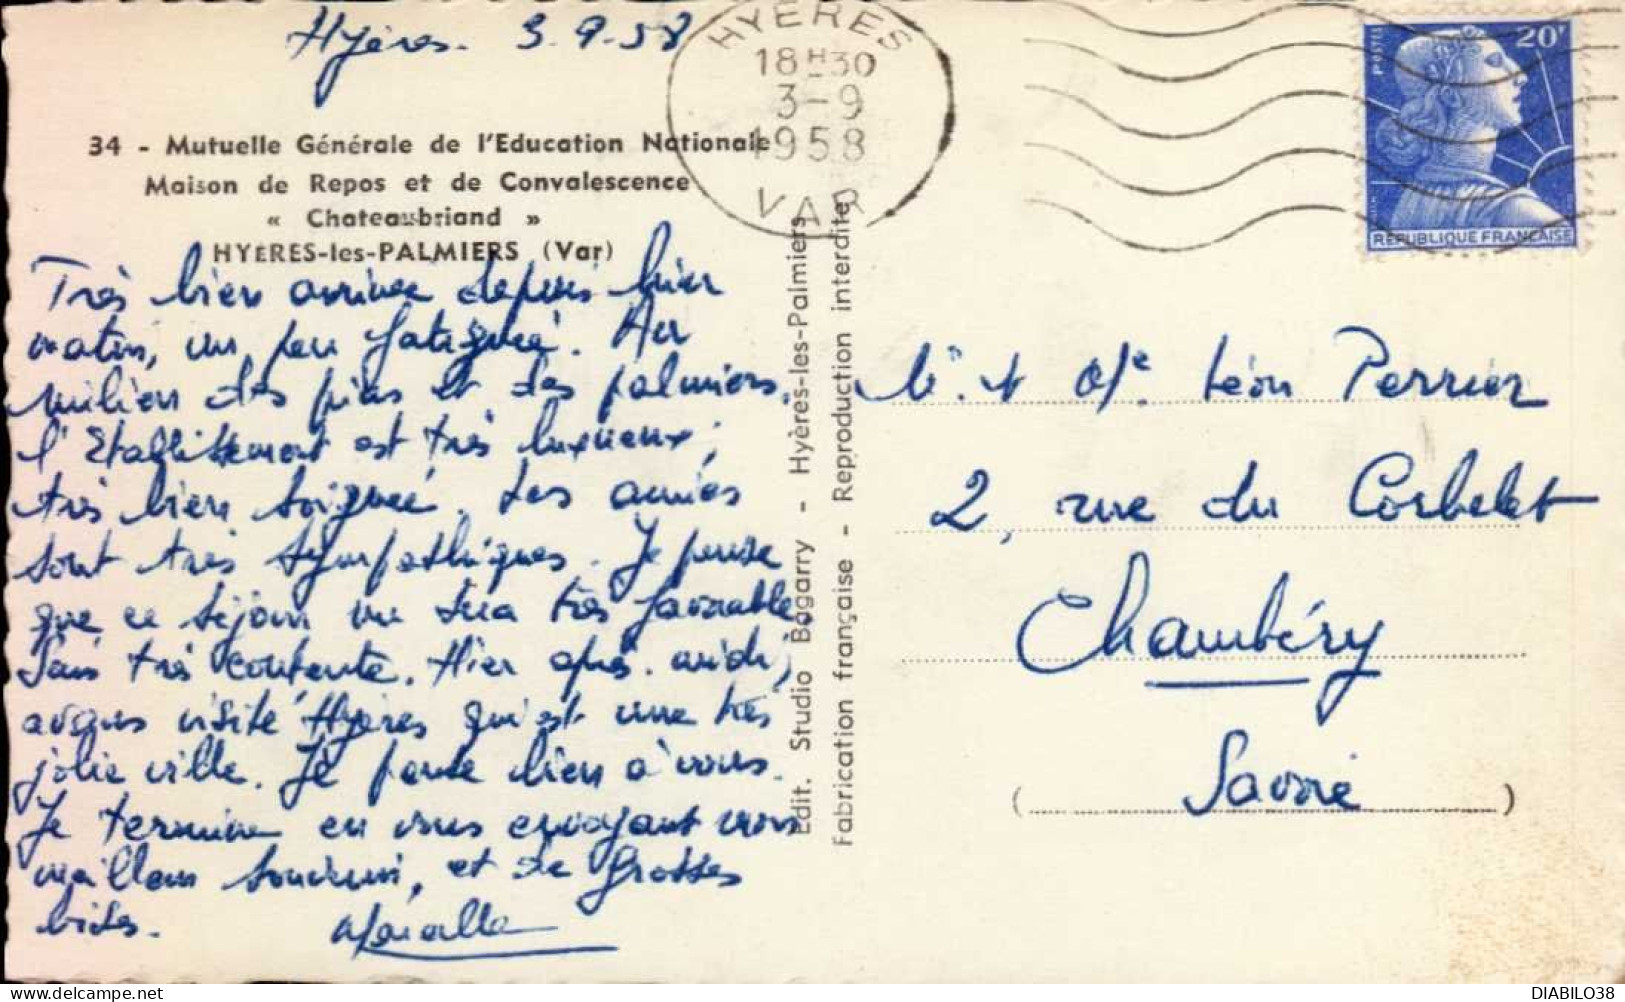 Hyères. 3.9.58
HYÈRES
18H30
3-9
1958
VAR
POSTES
20F
REPUBLIQUE FRANÇAISE
34 - Mutuelle Générale de l'Education Nationale
Maison de Repos et de Convalescence
« Chateaubriand »
HYÈRES-les-PALMIERS (Var)
Très bien arrivée depuis hier
matin, un peu fatiguée. Au
milieu des pins et des palmiers,
l'Etablissement est très luxueux;
très bien soignée. Les amies
sont très sympathiques. Je pense
que ce séjour me sera très favorable
Suis très contente. Hier après-midi,
avons visité Hyères qui est une très
jolie ville. Je pense bien à vous.
Je termine en vous envoyant mon
meilleur souvenir, et de grosses
bises.
Edit. Studio Bagarry - Hyères-les-Palmiers
Fabrication française - Reproduction interdite
Mr. et Me. Léon Perrier
2, rue du Corbelet
Chambéry
(Savoie)
DIABILO38